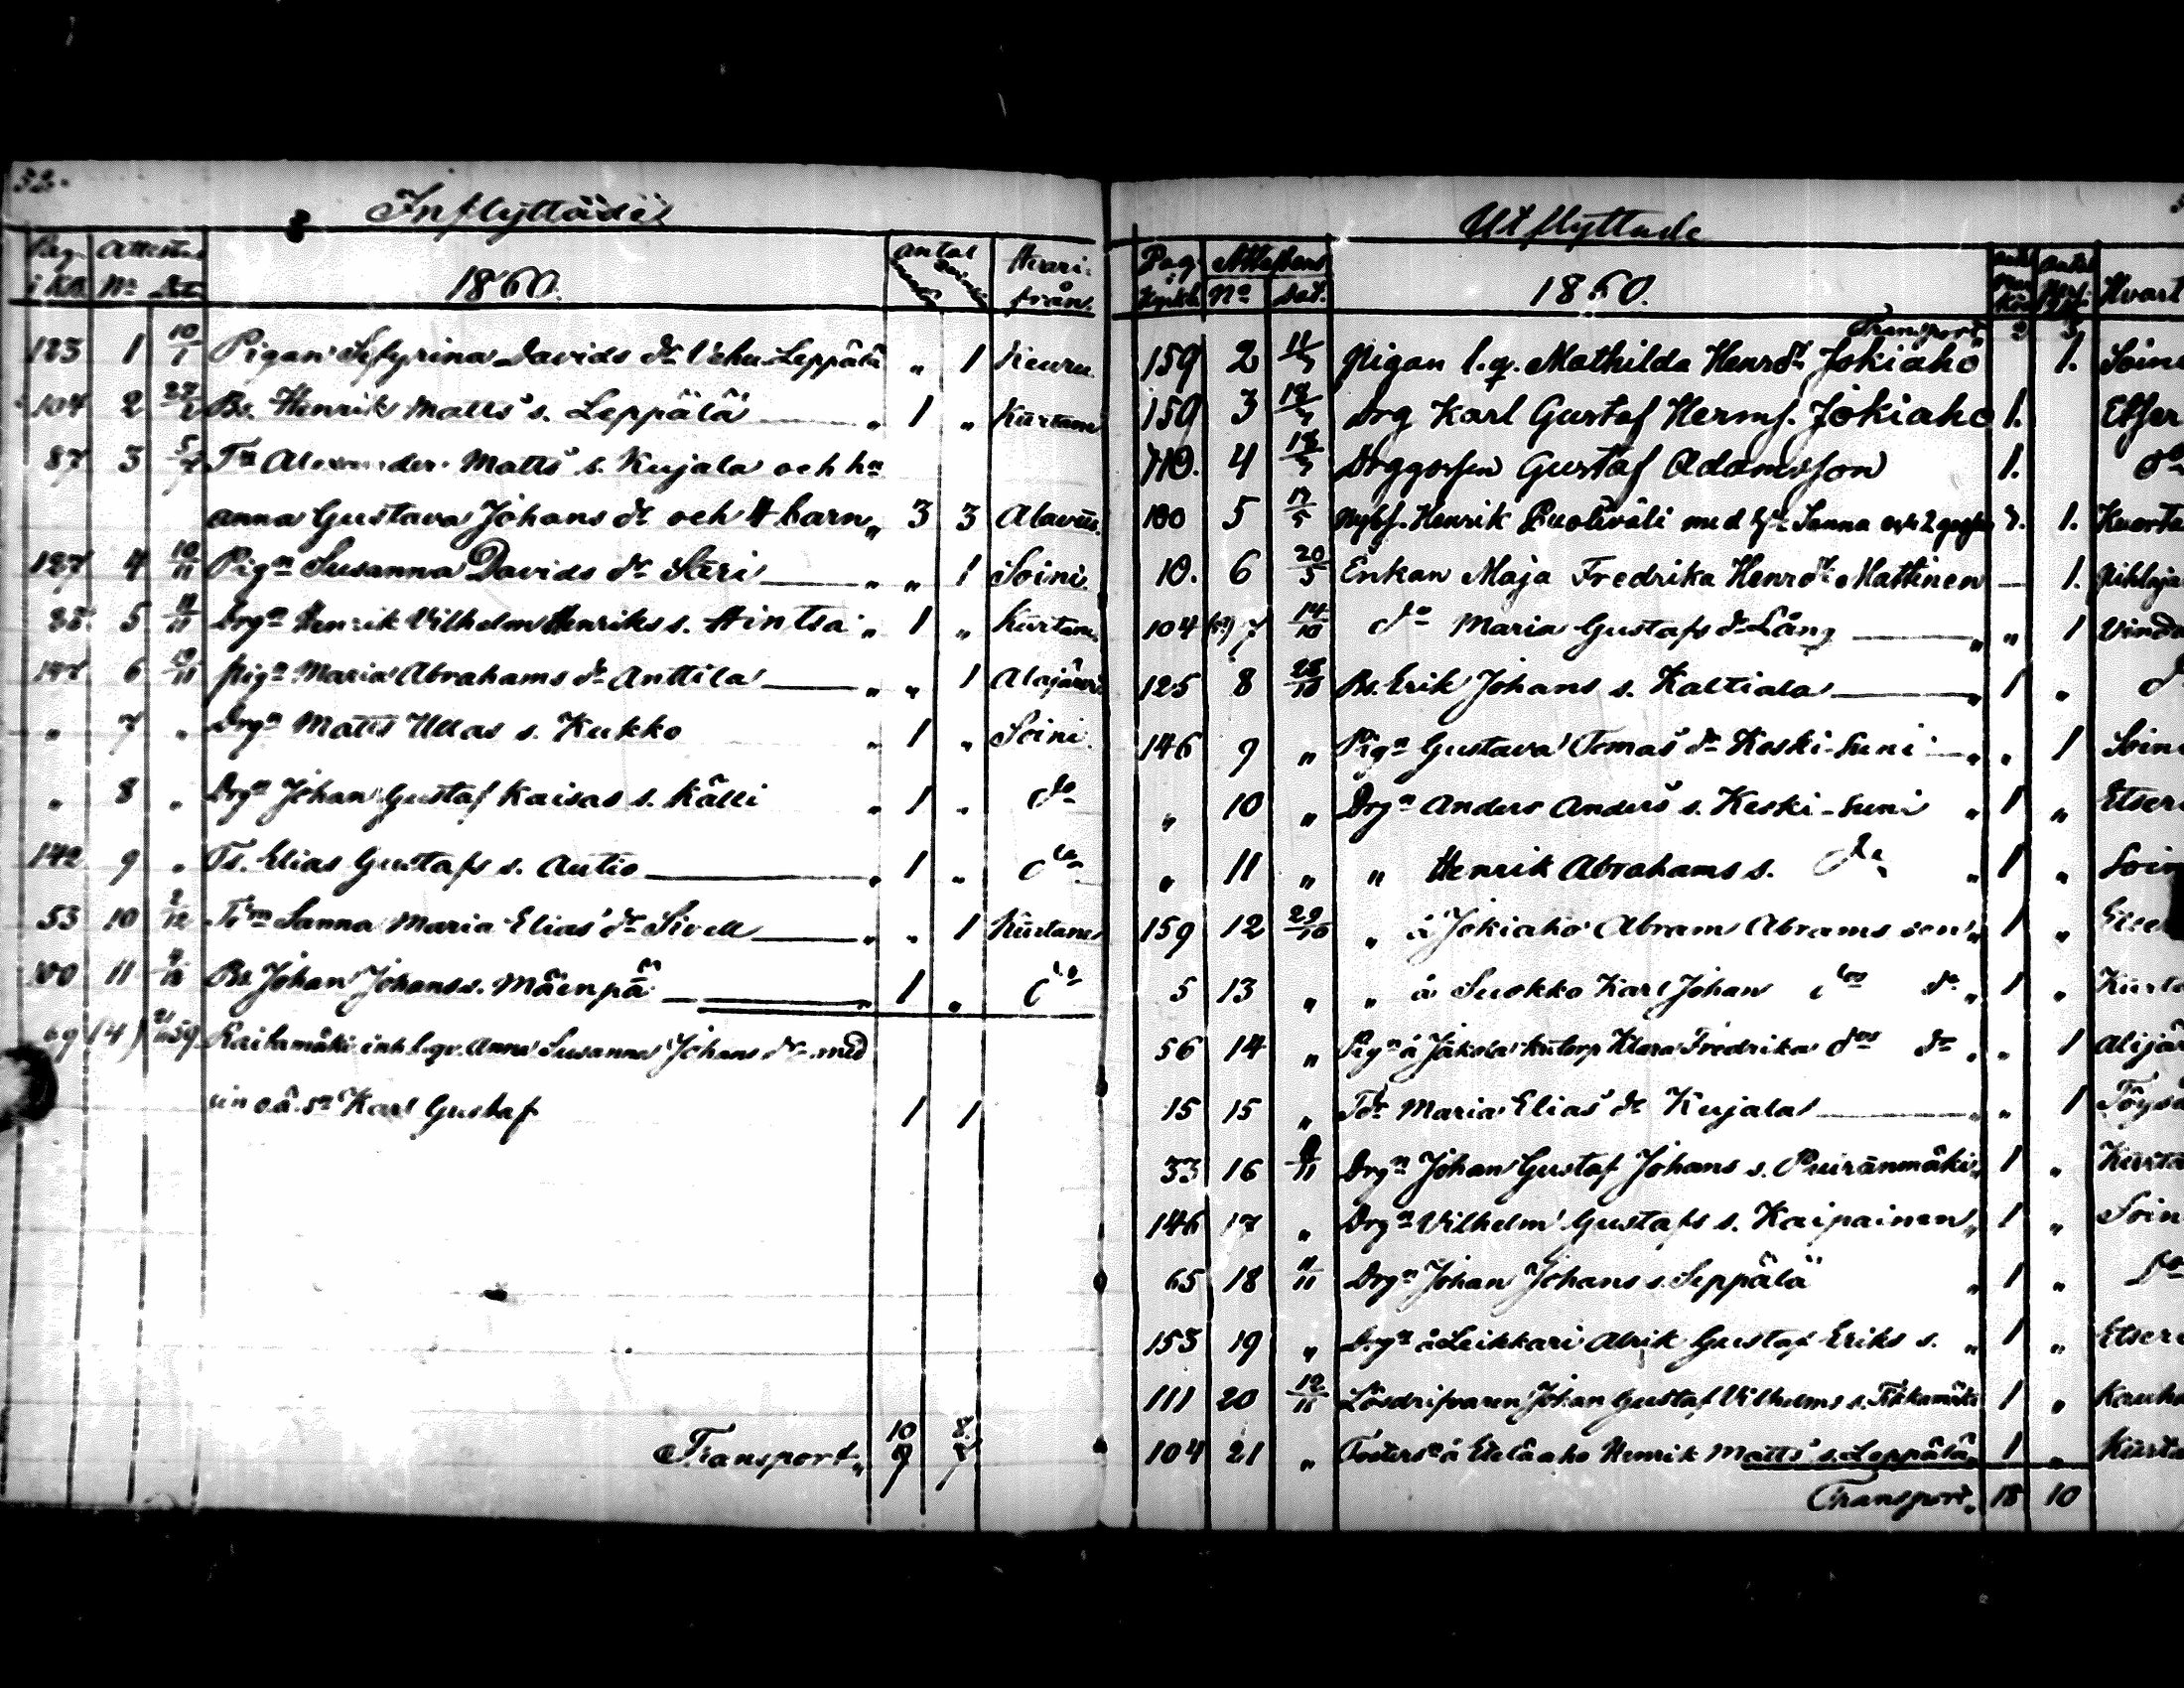 32.
Inflyttade
Pag. i Kb. Attestens No Dat. 1860. antal Hvari-från.
123 1 10/1 Pigan Sefyrina Davids dr Vehu-Leppälä „ 1 Keuru
104 2 27/2 Bs. Henrik Matts s. Leppälä „ 1 „ Kuortane
87 3 Tn Alexander Matts s. Kujala och hu
anna Gustava Johans dr och 4 barn „ 3 3 Alavus.
127 4 10/11 Pign Susanna Davids dr Säri „ „ 1 Soini
5 Drgn Henrik Vilhelm Henriks s. Hintsa „ 1 „ Kuortane
147 6 Pign Maria Abrahams dr Anttila „ „ 1 Alajärvi
„ 7 „ Drgn Matts Ullas s. Kukko „ 1 „ Soini
„ 8 „ Drgn Johan Gustaf Kaisas s. Källi „ 1 „ do
142 9 „ Ts. Elias Gustafs s. Autio „ 1 „ do
53 10 2/12 Sanna Maria Elias dr Sivell „ „ 1 Kuortane
100 11 Bs. Johan Johans s. Mäenpä „ 1 „ do
69 (4) Raitamäki inh. l.qv. Anna Susanna Johans dr med
sin o.ä. sn Karl Gustaf 1 1
Transport „ 10 8
Utflyttade
Pag. Kyrkb. Attestens No Dat. 1860. Hvart
Transport 3
159 2 Pigan l.q. Mathilda Henrdr Jokiaho 1. Soini
159 3 Drg Karl Gustaf Hermf. Jokiaho 1. Etser
110. 4 Drggossen Gustaf Adamsson 1. do
100 5 17/5 Nybf. Henrik Puoliväli med hu Sanna och 2 1. Kuorta
10. 6 20/5 Enkan Maja Fredrika Henrdr Mattinen — 1. Pihlaja
104 7 14/10 do Maria Gustafs dr Lång „ „ 1 Vinda
125 8 28/10 Bs. Erik Johans s. Kaltiala „ 1 „
146 9 „ Pign Gustava Tomas dr Koski-Suni „ „ 1 Soin
„ 10 „ Drgn Anders Anders s. Keski-Suni „ 1 „ Etseri
„ 11 „ „ Henrik Abrahams s. do „ 1 „ Soin
159 12 29/10 „ å Jokiaho Abram Abrams son „ 1 „ Etse
5 13 „ „ å Suokko Karl Johan dos do „ 1 „ Kuorta
56 14 „ Pign å Jakola Klara Fredrika dos dr „ „ 1 Alajär
15 15 „ Tdr Maria Elias dr Kujala „ „ 1 Töysä
33 16 Drgn Johan Gustaf Johans s. Puiranmäki „ 1 „ Kuorta
146 17 „ Drgn Vilhelm Gustafs s. Kaipainen „ 1 „ Soin
65 18 11/11 Drgn Johan Johans s. Seppälä „ 1 „ do
153 19 „ Drgn å Leikkari Alrik Gustaf Eriks s. „ 1 „ Etseri
111 20 Lösdrifvaren Johan Gustaf Vilhelms s. 1 „ Kauha
104 21 „ å Eteläaho Henrik Matts s. Leppälä „ 1 „ Kuorta
Transport „ 18 10